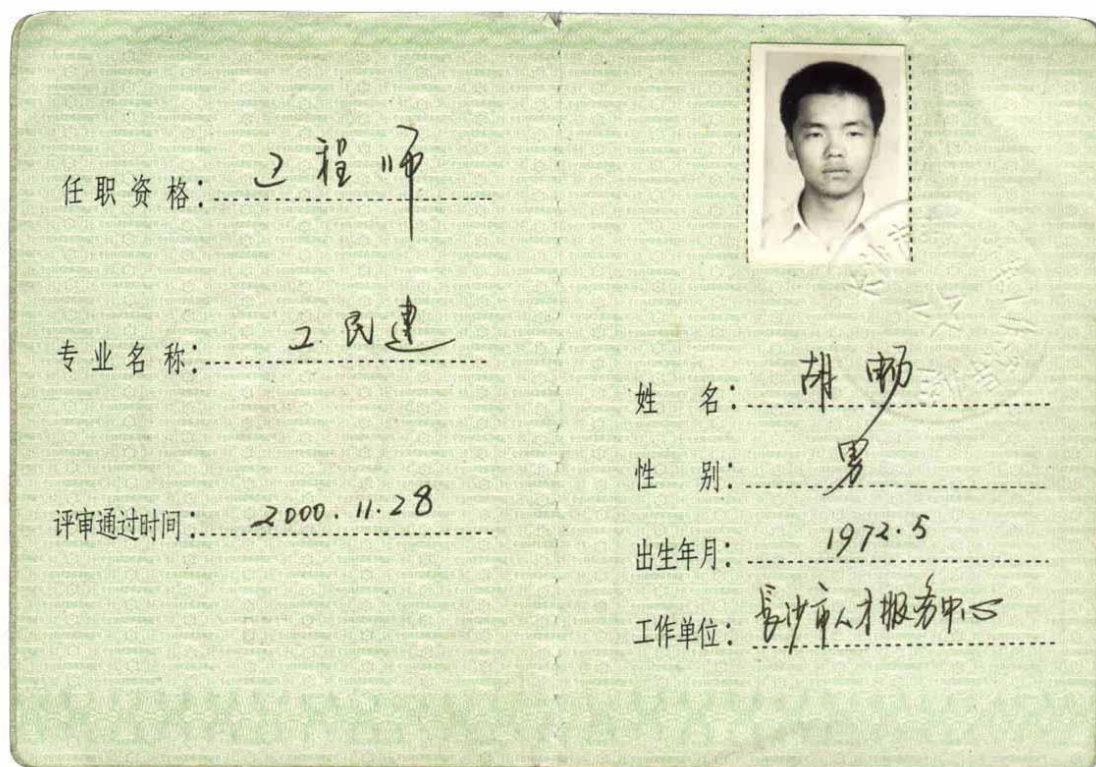 任职资格：工程师
专业名称：工民建
评审通过时间：2000.11.28
姓名：胡畅
性别：男
出生年月：1972.5
工作单位：長沙市人才服务中心